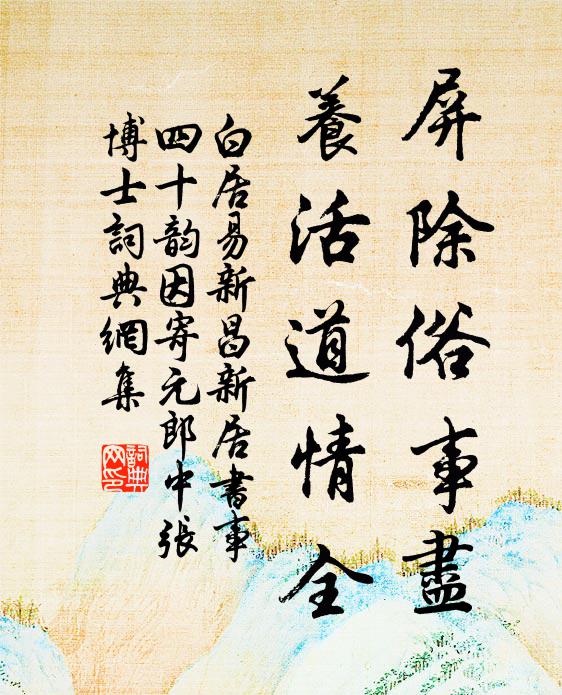 屏除俗事盡
養活道情全
白居易新昌新居書事
四十韵因寄元郎中張
博士詞典網集
詞典网印